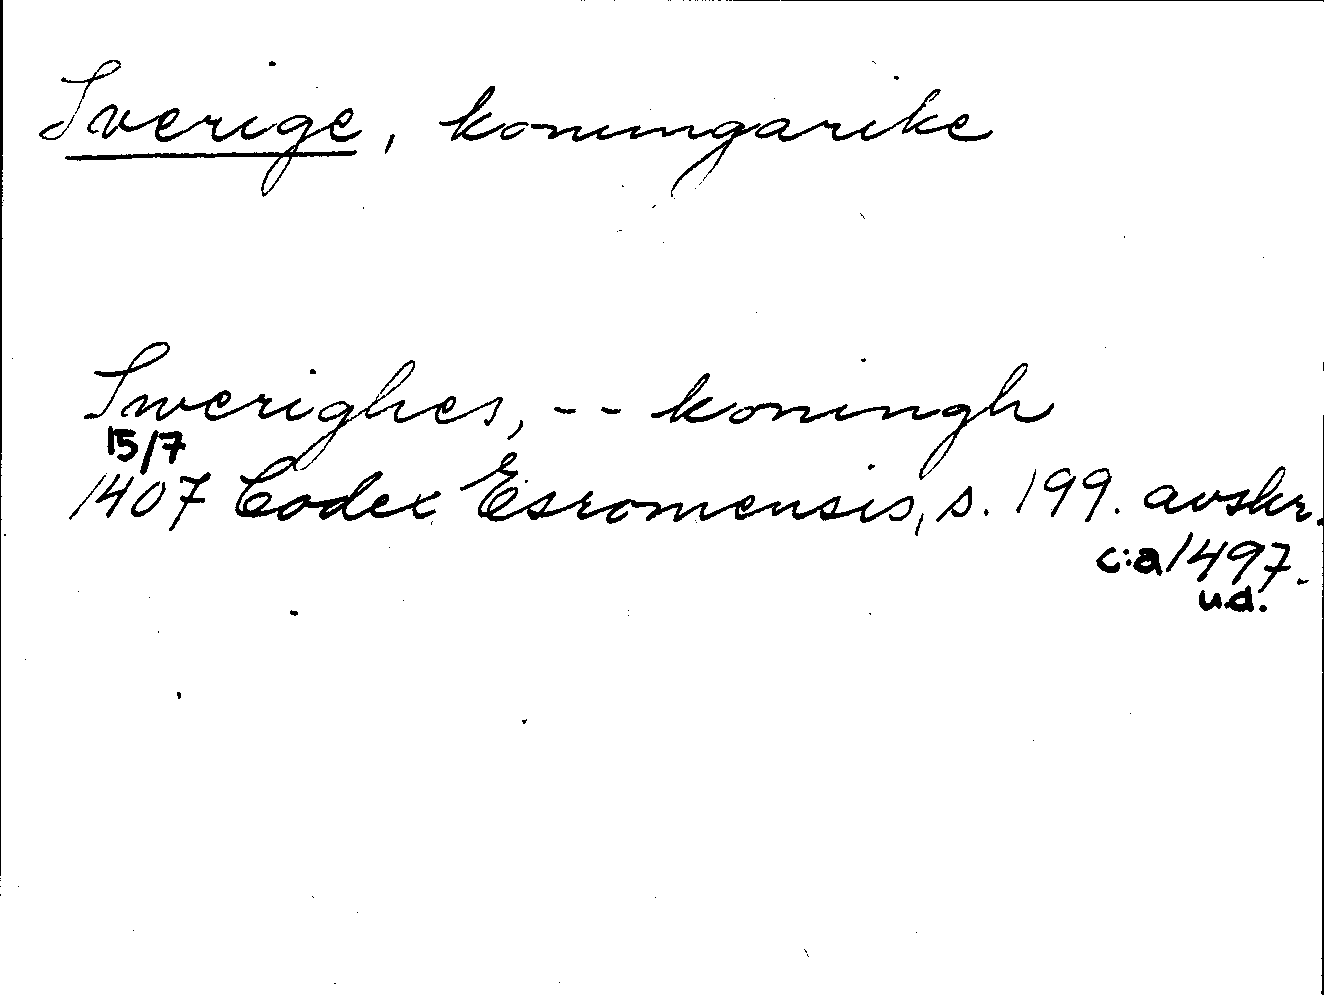 Sverige, konungarike
Swerighes, -- koningh
15/7
1407 Codex Esromensis, s. 199. avskr.
c:a 1497.
u.d.